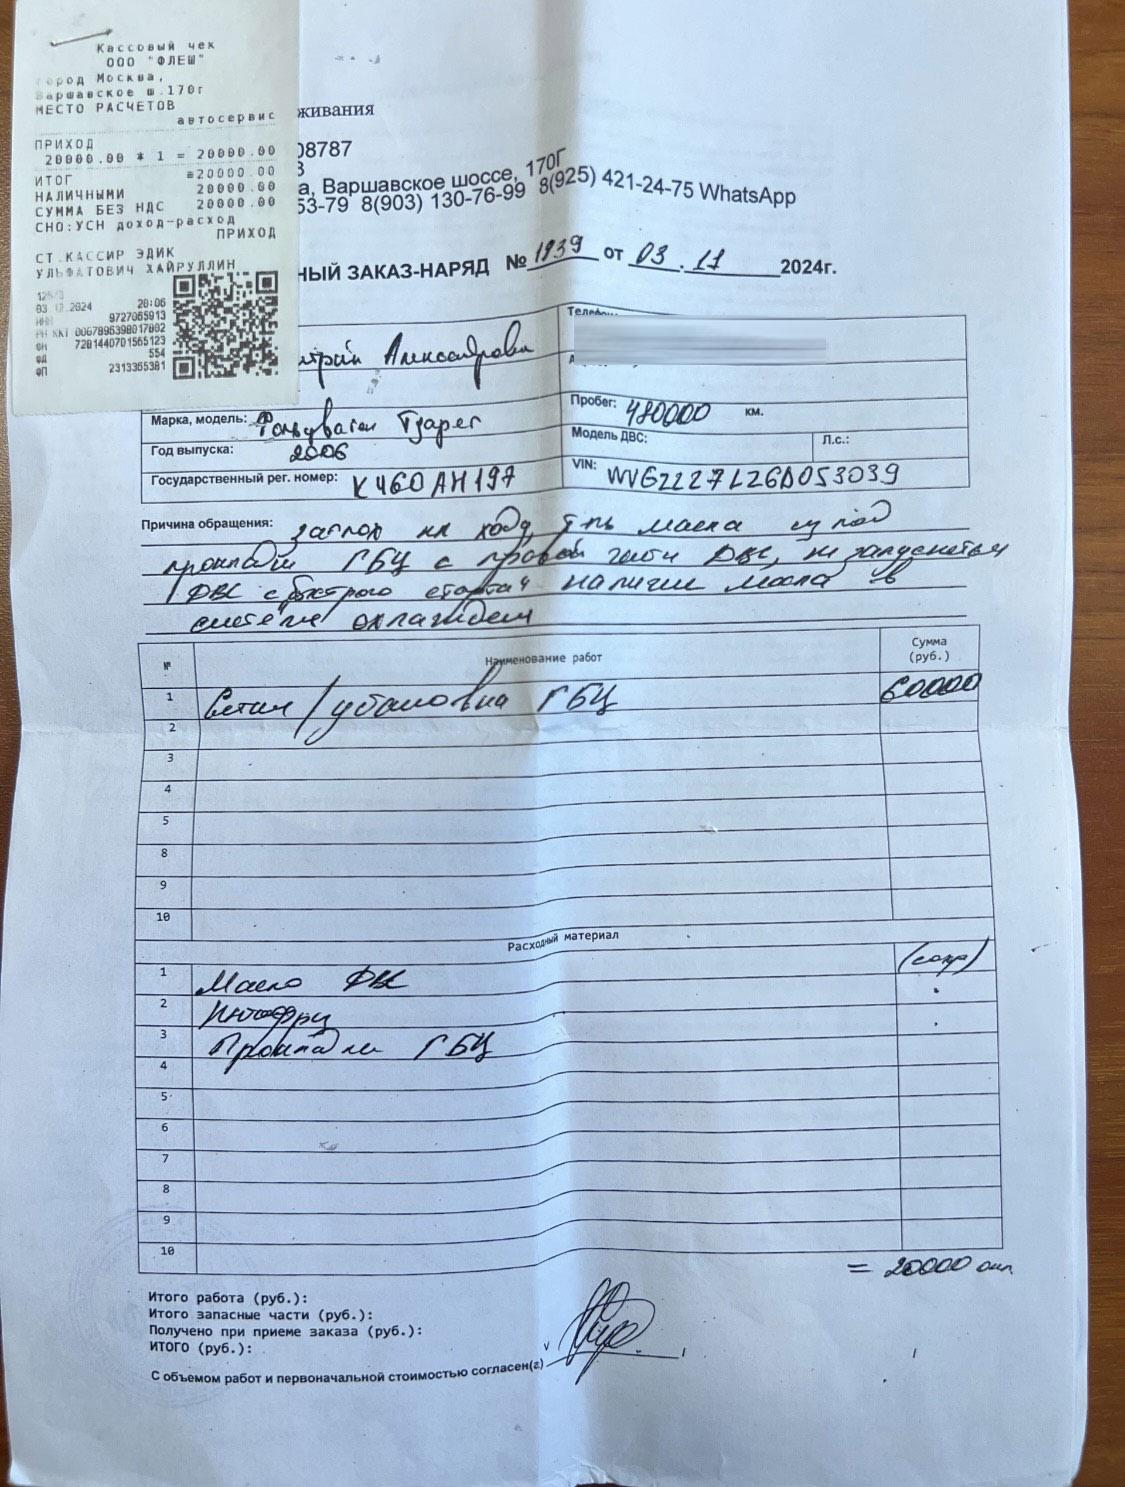 Кассовый чек
ООО "ФЛЕШ"
город Москва,
Варшавское ш.170г
МЕСТО РАСЧЕТОВ
автосервис
ПРИХОД
20000.00 * 1 = 20000.00
ИТОГ ≡20000.00
НАЛИЧНЫМИ 20000.00
СУММА БЕЗ НДС 20000.00
СНО:УСН доход-расход
ПРИХОД
СТ.КАССИР ЭДИК
УЛЬФАТОВИЧ ХАЙРУЛЛИН
2024 20:06
ИНН 9727065913
РН ККТ 0067896398017802
ФН 7281440701565123
ФД 554
ФП 2313365381
живания
08787
а, Варшавское шоссе, 170Г
53-79 8(903) 130-76-99 8(925) 421-24-75 WhatsApp
НЫЙ ЗАКАЗ-НАРЯД № 1939 от 03.11 2024г.
Телефон
итрий Александрови
Марка, модель: Фольцваген Туарег
Пробег: 480000 км.
Год выпуска: 2006
Модель ДВС: Л.с.:
Государственный рег. номер: К460АН197
VIN: WVGZZZ7LZ6D053039
Причина обращения: заглох на ходу, течь масла из под
прокладки ГБЦ с правой части ДВС, не запускается
ДВС с "быстрого старта" наличие масла в
системе охлаждения
№ Наименование работ Сумма (руб.)
1 Снятие/установка ГБЦ 60000
2
3
4
5
8
9
10
Расходный материал
1 Масло ДВС
2 Антифриз
3 Прокладки ГБЦ
4
5
6
7
8
9
10
= 20000 опл.
Итого работа (руб.):
Итого запасные части (руб.):
Получено при приеме заказа (руб.):
ИТОГО (руб.):
v
С объемом работ и первоначальной стоимостью согласен(а)